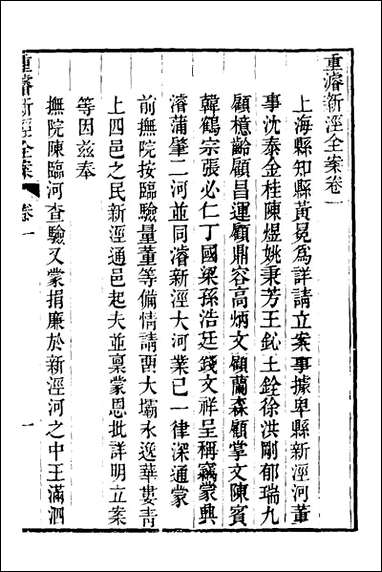 重濬新涇全案卷一
上海縣知縣黃冕為詳請立案事據卑縣新涇河董
事沈泰金桂陳煜姚秉芳王鈊土銓徐洪剛郁瑞九
顧檍齡顧昌運顧鼎容高炳文顧蘭森顧掌文陳賓
韓鶴宗張必仁丁國梁孫浩廷錢文祥呈稱竊蒙興
濬蒲肇二河並同濬新涇大河業已一律深通蒙
前撫院按臨驗量董等備情請開大壩永逸華婁青
上四邑之民新涇通邑起夫並稟蒙恩批詳明立案
等因茲奉
撫院陳臨河查驗又蒙捐廉於新涇河之中王滿泗
重濬新涇全案
卷一
一